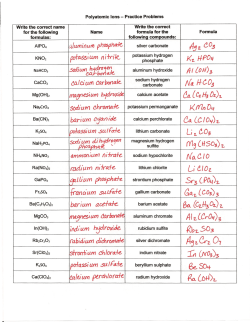 Polyatomic Ions – Practice Problems
Write the correct name for the following formulas: Name Write the correct formula for the following compounds: Formula
AlPO₄ aluminum phosphate silver carbonate Ag₂CO₃
KNO₂ potassium nitrite potassium hydrogen phosphate K₂HPO₄
NaHCO₃ sodium hydrogen carbonate aluminum hydroxide Al(OH)₃
CaCO₃ calcium carbonate sodium hydrogen carbonate NaHCO₃
Mg(OH)₂ magnesium hydroxide calcium acetate Ca(C₂H₃O₂)₂
Na₂CrO₄ sodium chromate potassium permanganate KMnO₄
Ba(CN)₂ barium cyanide calcium perchlorate Ca(ClO₄)₂
K₂SO₄ potassium sulfate lithium carbonate Li₂CO₃
NaH₂PO₄ sodium dihydrogen phosphate magnesium hydrogen sulfite Mg(HSO₃)₂
NH₄NO₃ ammonium nitrate sodium hypochlorite NaClO
Ra(NO₃)₂ radium nitrate lithium chlorite LiClO₂
GaPO₄ gallium phosphate strontium phosphate Sr₃(PO₄)₂
Fr₂SO₄ francium sulfate gallium carbonate Ga₂(CO₃)₃
Ba(C₂H₃O₂)₂ barium acetate barium acetate Ba(C₂H₃O₂)₂
MgCO₃ magnesium carbonate aluminum chromate Al₂(CrO₄)₃
In(OH)₃ indium hydroxide rubidium sulfite Rb₂SO₃
Rb₂Cr₂O₇ rubidium dichromate silver dichromate Ag₂Cr₂O₇
Sr(ClO₃)₂ strontium chlorate indium nitrate In(NO₃)₃
K₂SO₄ potassium sulfate beryllium sulphate BeSO₄
Ca(ClO₄)₂ calcium perchlorate radium hydroxide Ra(OH)₂